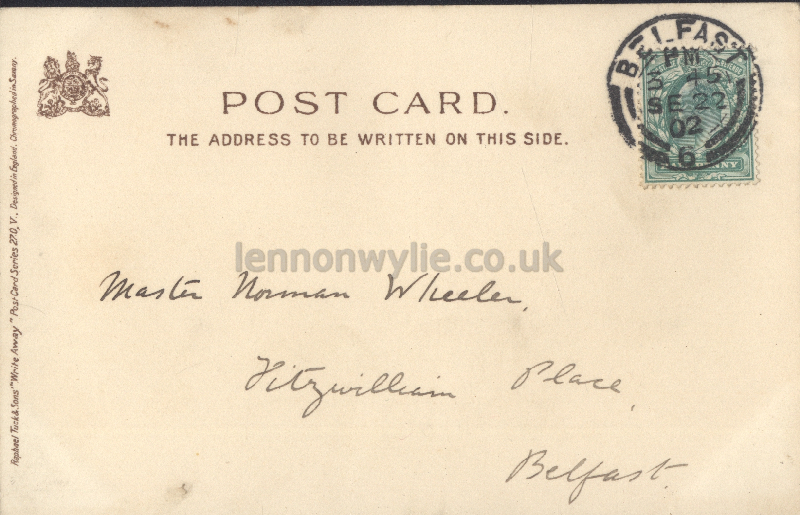 BELFAST
PM
3 45
SE 22
02
6
POST CARD.
THE ADDRESS TO BE WRITTEN ON THIS SIDE.
lennonwylie.co.uk
Master Norman Wheeler,
Fitzwilliam Place,
Belfast.
Raphael Tuck & Sons' "Write Away" Post Card Series 270, V., Designed in England. Chromographed in Saxony.